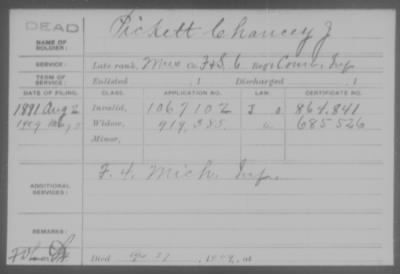 DEAD
NAME OF SOLDIER: Pickett Chauncey J
SERVICE: Late rank, Mus Co. F&S, 6 Reg't Conn. Inf
TERM OF SERVICE: Enlisted , 1 Discharged , 1
DATE OF FILING. CLASS. APPLICATION NO. LAW. CERTIFICATE NO.
1891 Aug 2 Invalid, 1067102 J 864.841
1909 Widow, 919,385. 685526
Minor,
ADDITIONAL SERVICES: F. 4. Mich. Inf.
REMARKS:
Died , at